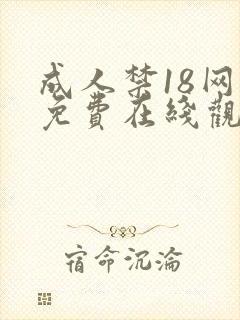 成人禁18网
免費在綫觀
宿命沉淪